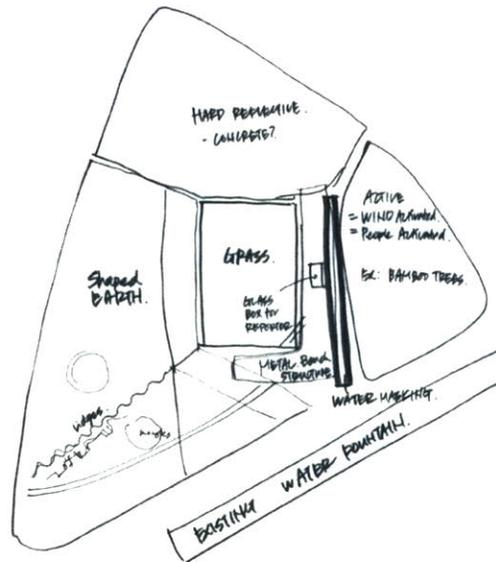 HARD REFLECTIVE.
- CONCRETE?
ACTIVE
= WIND Activated.
= People Activated.
EX: BAMBOO TREES.
GRASS.
Shaped
EARTH.
GLASS
BOX for
REPORTER
METAL Band
STRUCTURE.
WATER MASKING.
EXISTING WATER FOUNTAIN.